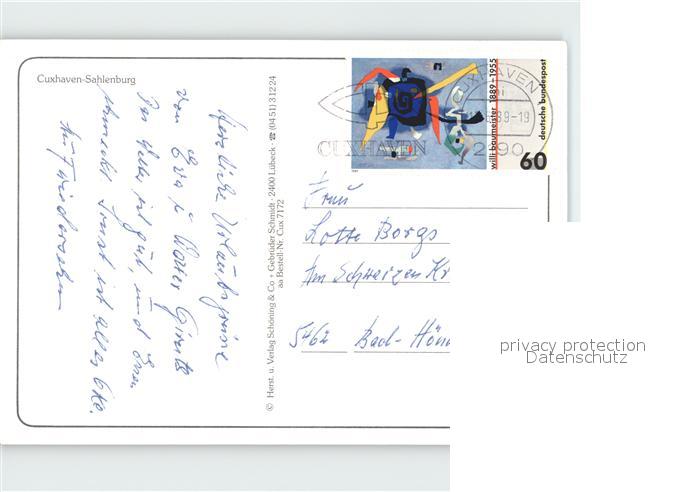 Cuxhaven-Sahlenburg
Herzliche Urlaubsgrüße
von Eva u.
Das Wetter ist gut, und Essen
schmeckt sonst ist alles Oke.
Auf Wiedersehen
© Herst. u. Verlag Schöning & Co + Gebrüder Schmidt · 2400 Lübeck · ☎ (04 51) 3 12 24
aa Bestell-Nr. Cux 7172
willi baumeister 1889-1955
deutsche bundespost
60
CUXHAVEN
89-19
2190
CUXHAVEN
Frau
Lotte Borgs
Am Schwarzen Kr
5462 Bad-Hönn
privacy protection
Datenschutz